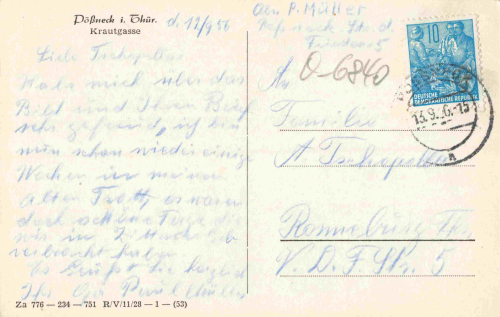 Pößneck i. Thür.
Krautgasse
d. 12/9 56
Abs. P. Müller
Pößneck Str. d.
Friedens 5
0-6840
10
DEUTSCHE
DEMOKRATISCHE REPUBLIK
13.9.56.-15
Liebe
Habe mich über das
Bild und Ihren
sehr gefreut, ich bin
nun schon wieder einige
Wochen in meinen
alten Trott, es waren
doch schöne Tage die
wir in
verbracht haben.
Es Grüßt die herzlich
Ihr
An
Familie
A
Ronneburg Th.
V. D. F. Str. 5
Za 776 — 234 — 751 R/V/11/28 — 1 — (53)